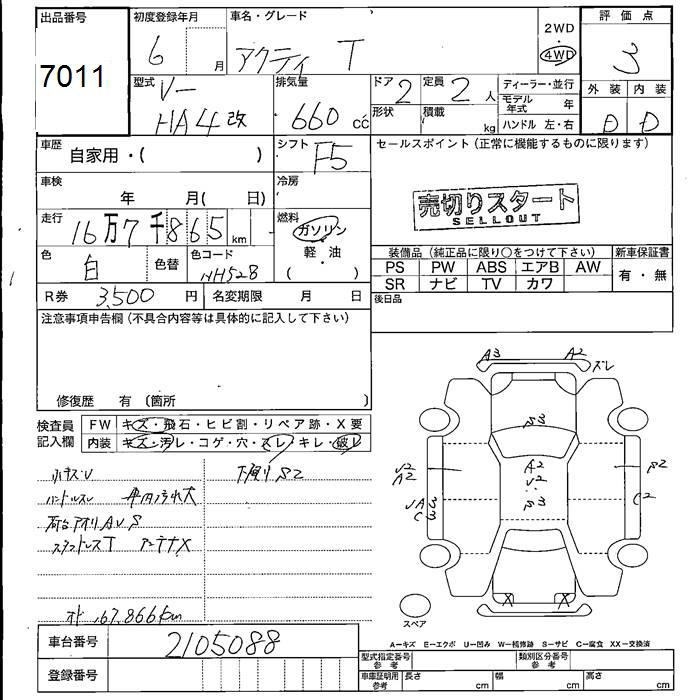 出品番号
7011
初度登録年月
6 月
車名・グレード
アクティ T
2WD
4WD
評価点
3
外装 内装
D D
型式
V-
HA4改
排気量
660 cc
ドア 2
定員 2 人
形状
積載 kg
ディーラー・並行
モデル年式 年
ハンドル 左・右
車歴
自家用・( )
シフト F5
セールスポイント(正常に機能するものに限ります)
売切りスタート
SELLOUT
車検
年 月( 日)
冷房
走行
16万7千865 km
燃料
ガソリン
軽・油
( )
色 白
色替
色コード NH528
装備品(純正品に限り○をつけて下さい)
新車保証書
PS PW ABS エアB AW
有・無
SR ナビ TV カワ
R券 3,500 円
名変期限 月 日
後日品
注意事項申告欄(不具合内容等は具体的に記入して下さい)
修復歴 有(箇所 )
検査員
記入欄
FW キズ・飛石・ヒビ割・リペア跡・X要
内装 キズ・汚レ・コゲ・穴・スレ・キレ・破レ
小キズ・U
下廻りS2
ハンドルスレ 車内汚れ大
荷台アオリAUS
スタッドレスT アンテナX
オド 167,866km
A3 A2
ズレ
S3
A2
U2
S3
U2
A2
UA3
C3
S2
C2
X X
スペア
A-キズ E-エクボ U-凹み W-補修跡 S-サビ C-腐食 XX-交換済
車台番号
2105088
登録番号
型式指定番号
参考
類別区分番号
参考
車庫証明用
参考
長さ cm
幅 cm
高さ cm